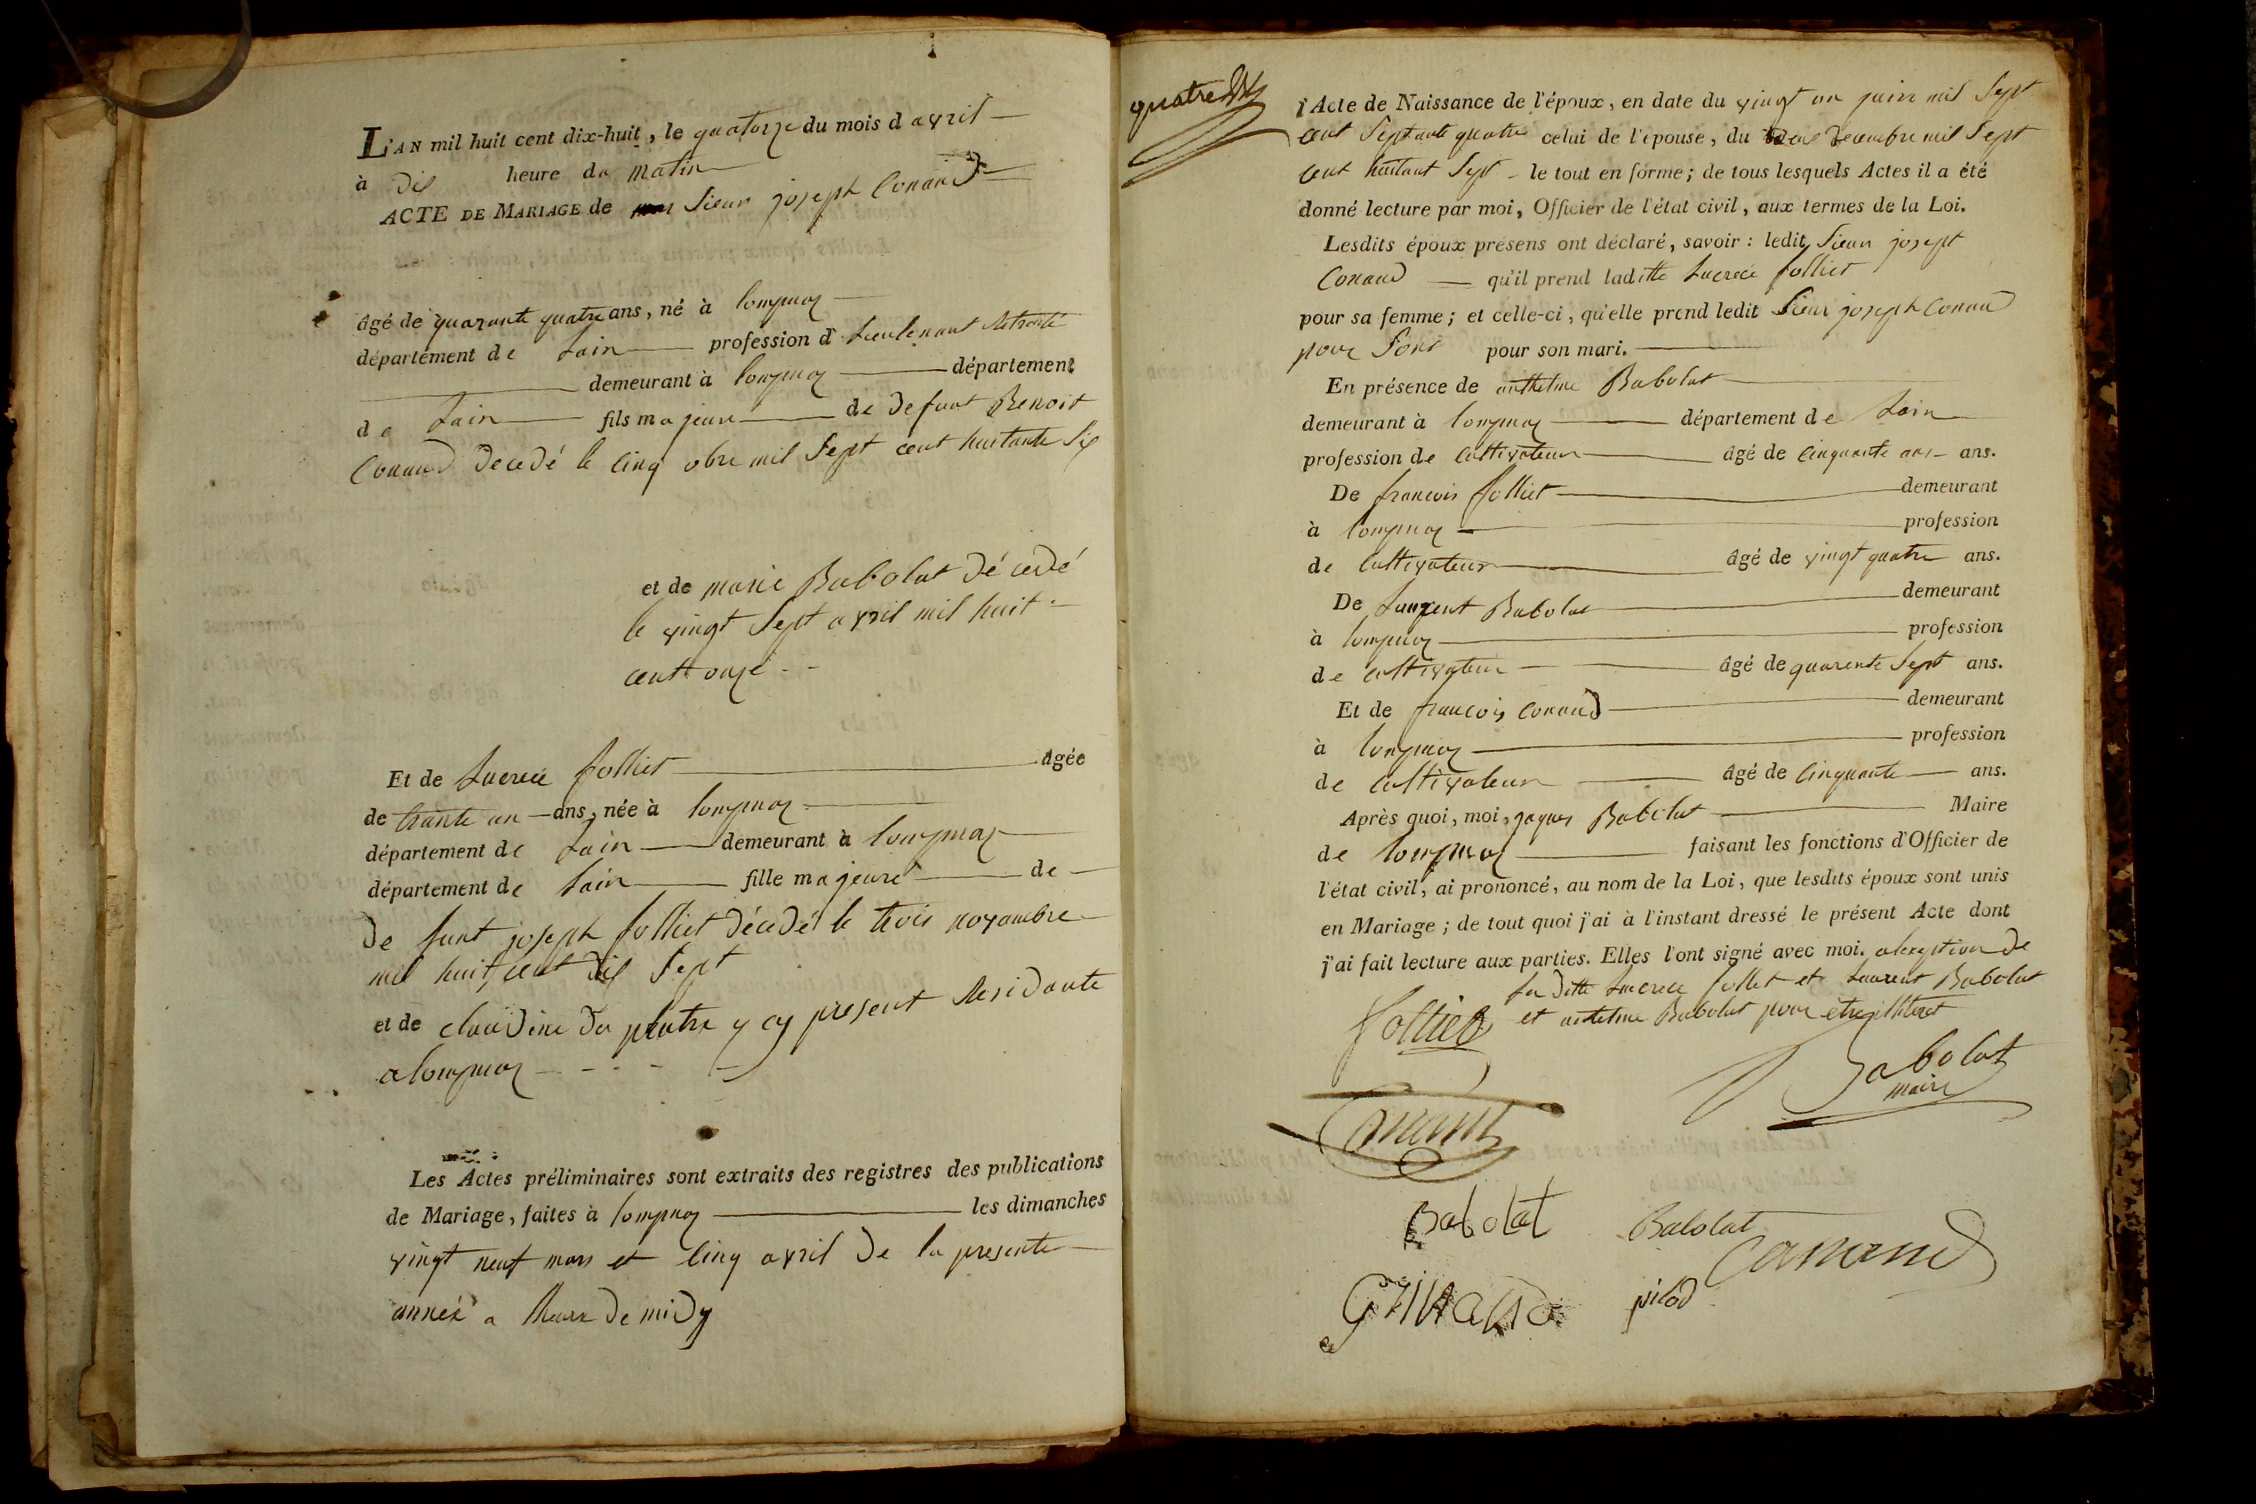 L'AN mil huit cent dix-huit, le quatorze du mois d avril
à dix heure du matin
ACTE DE MARIAGE de Sieur joseph Conand
âgé de quarante quatre ans, né à lompnaz
département de Lain profession d Lieutenant Retraité
demeurant à lompnaz département
de Lain fils majeur de defunt Benoit
Conand decedé le cinq obre mil sept cent huitante six
et de marie Babolat décedé
le vingt sept avril mil huit
cent onze
Et de Lucrece folliet âgée
de trante un ans, née à lompnaz
département de Lain demeurant à lompnaz
département de Lain fille majeure de
de funt joseph folliet décedé le trois novambre
mil huit cent dix sept
et de claudine du platre y cy present Residante
a lompnaz
Les Actes préliminaires sont extraits des registres des publications
de Mariage, faites à lompnaz les dimanches
vingt neuf mars et cinq avril de la presente
année a lheure de midy
quatre
l'Acte de Naissance de l'époux, en date du vingt un juin mil sept
cent septante quatre celui de l'épouse, du decembre mil sept
cent huitant sept le tout en forme; de tous lesquels Actes il a été
donné lecture par moi, Officier de l'état civil, aux termes de la Loi.
Lesdits époux présens ont déclaré, savoir: ledit Sieur joseph
Conand qu'il prend laditte Lucrece folliet
pour sa femme; et celle-ci, qu'elle prend ledit Sieur joseph Conand
pour pour son mari.
En présence de anthelme Babolat
demeurant à lompnaz département de Lain
profession de cultivateur âgé de cinquante ans ans.
De francois folliet demeurant
à lompnaz profession
de cultivateur âgé de vingt quatre ans.
De Laurent Babolat demeurant
à lompnaz profession
de cultivateur âgé de quarente sept ans.
Et de francois conand demeurant
à lompnaz profession
de cultivateur âgé de cinquante ans.
Après quoi, moi, jaques Babolat Maire
de lompnaz faisant les fonctions d'Officier de
l'état civil, ai prononcé, au nom de la Loi, que lesdits époux sont unis
en Mariage; de tout quoi j'ai à l'instant dressé le présent Acte dont
j'ai fait lecture aux parties. Elles l'ont signé avec moi. alexeption de
la ditte Lucrece follet et Laurent Babolat
et antelme Babolat pour etre illiteret
folliet
Babolat
maire
Conand
Babolat
Babolat
Conand
pilod